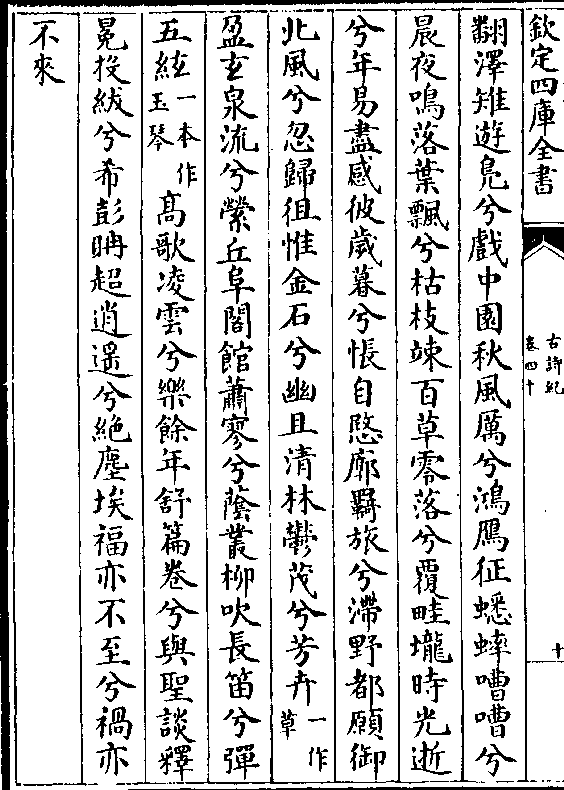 欽定四庫全書
古詩紀
卷四十
十
翻澤雉遊鳧兮戲中園秋風厲兮鴻鴈征蟋蟀嘈嘈兮
晨夜鳴落葉飄兮枯枝竦百草零落兮覆畦壠時光逝
兮年易盡感彼歲暮兮悵自愍廓羇旅兮滯野都願御
北風兮忽歸徂惟金石兮幽且清林鬱茂兮芳卉一作草
盈玄泉流兮縈丘阜閣館蕭寥兮蔭叢柳吹長笛兮彈
五絃一本作玉琴高歌凌雲兮樂餘年舒篇卷兮與聖談釋
冕投紱兮希彭聃超逍遥兮絶塵埃福亦不至兮禍亦
不來